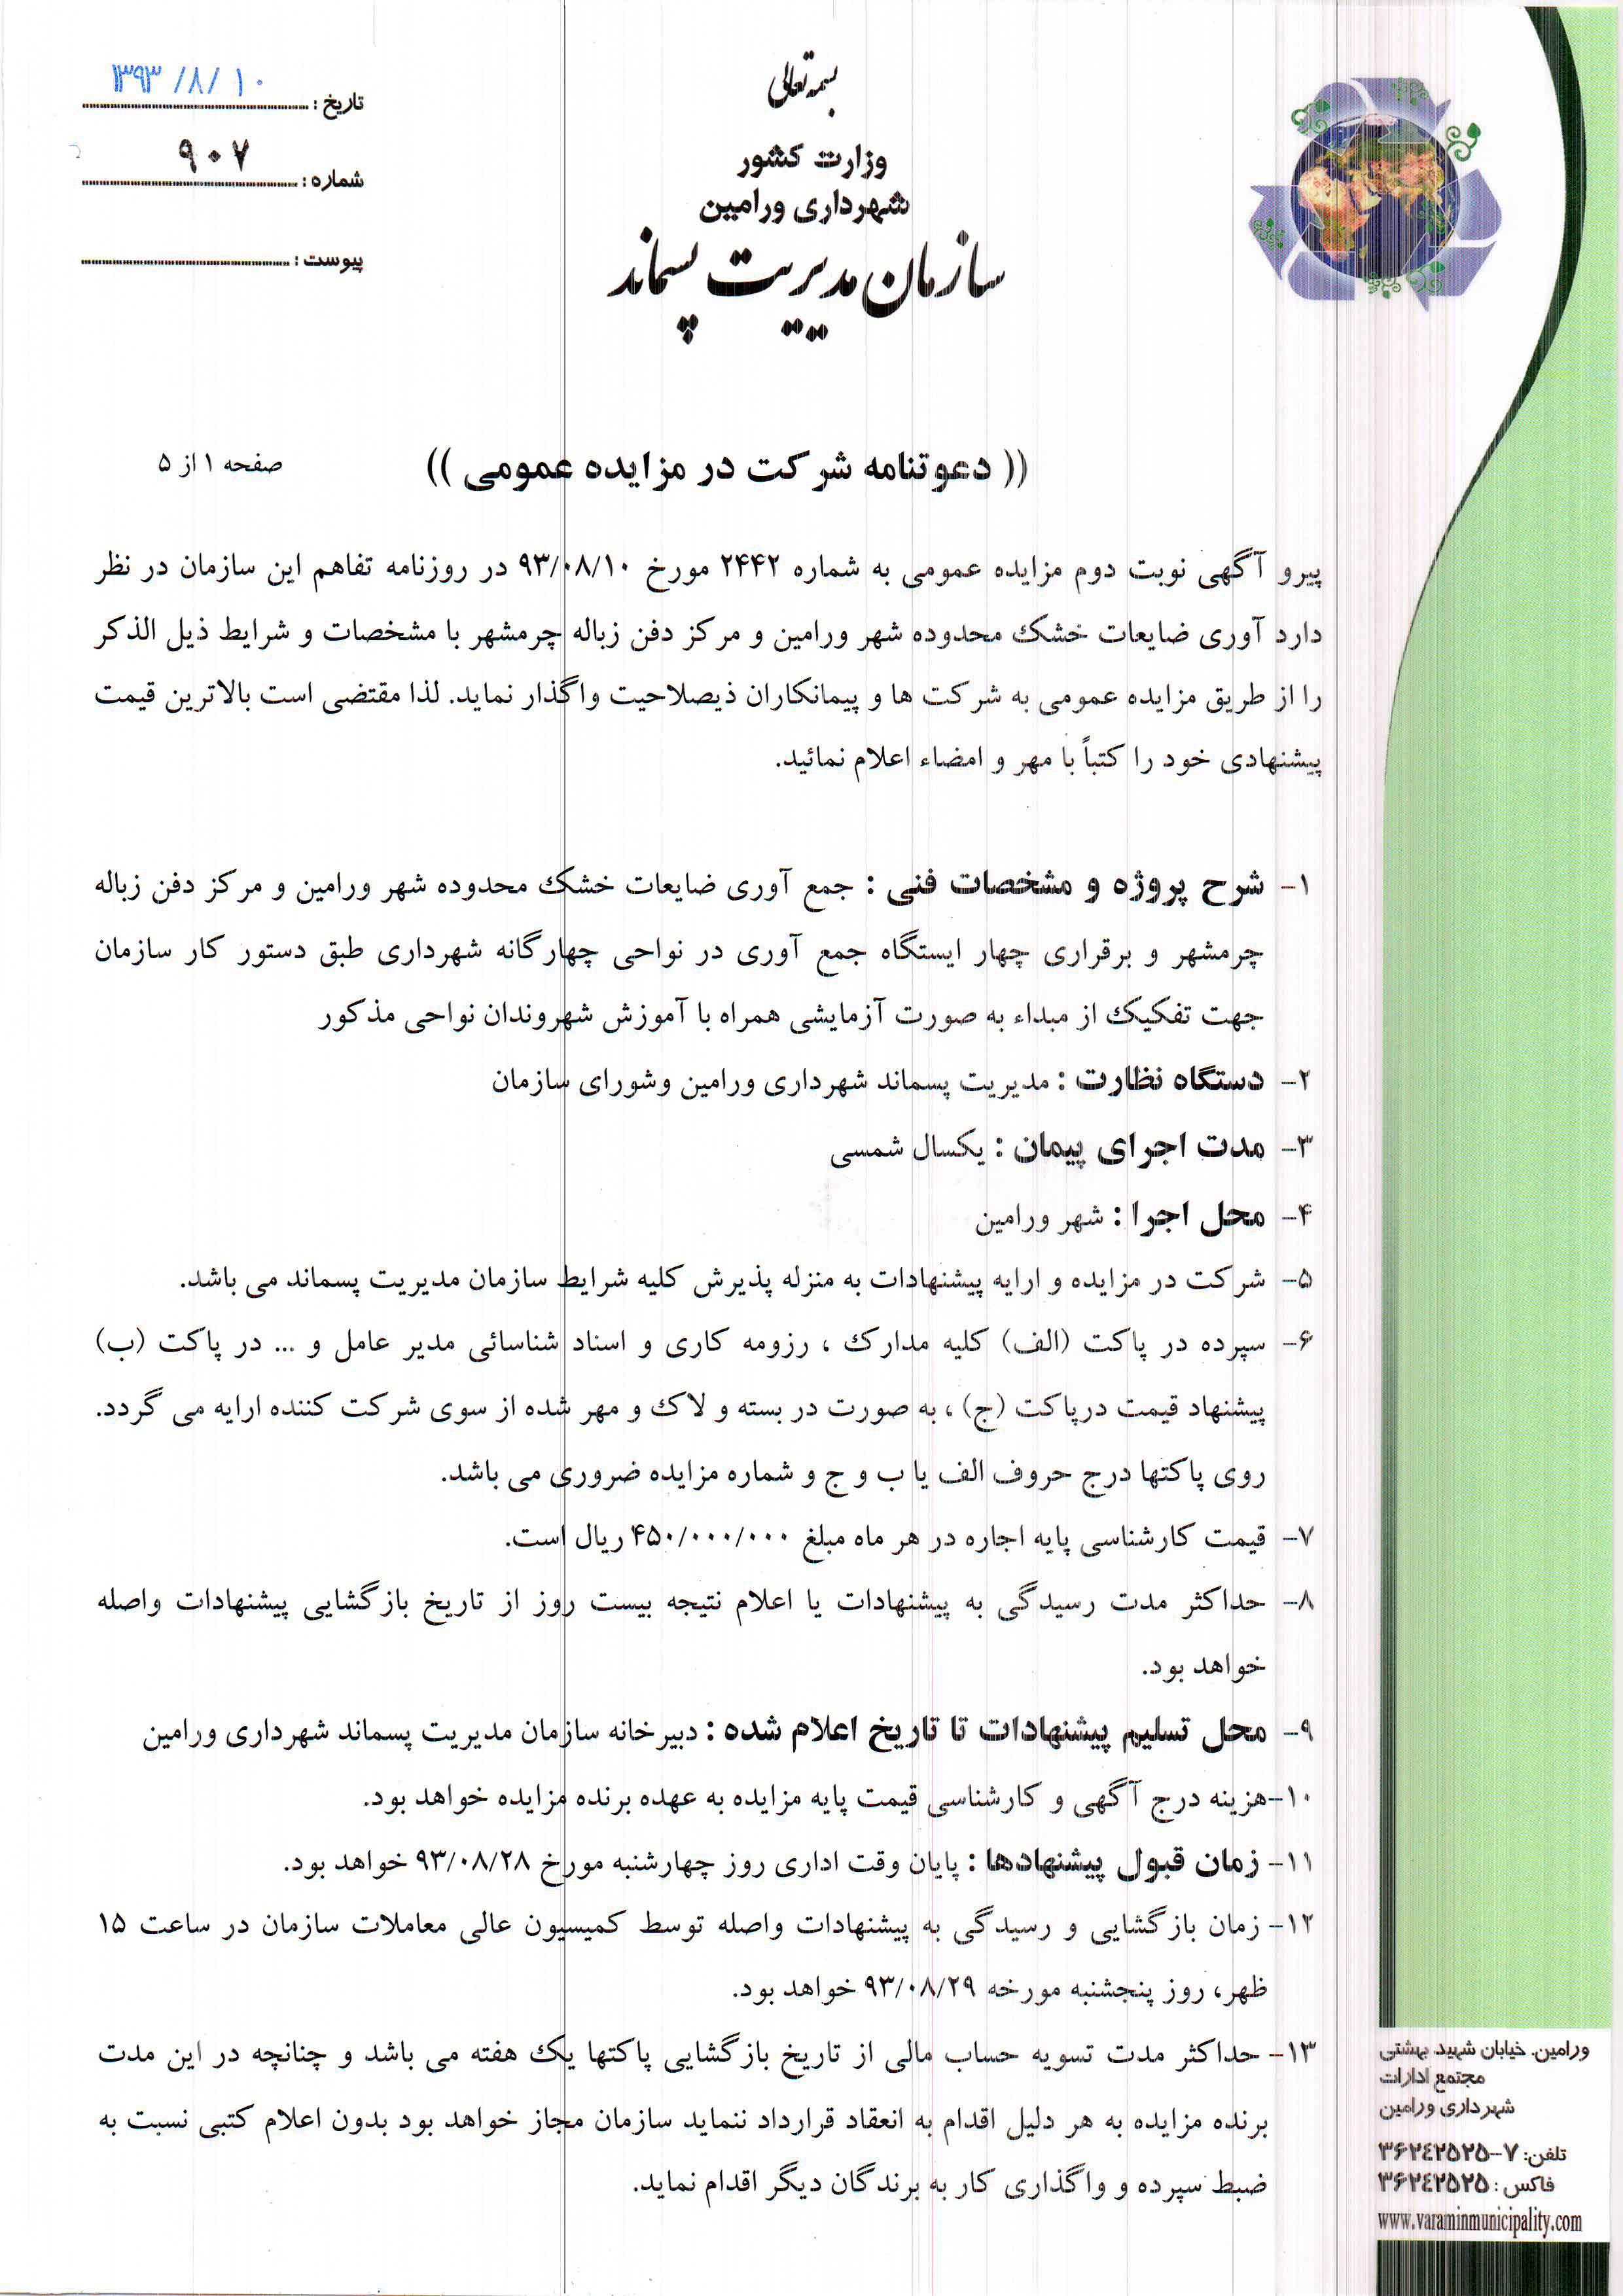 بسمه تعالی
وزارت کشور
شهرداری ورامین
سازمان مدیریت پسماند
تاریخ : ۱۳۹۳/۸/۱۰
شماره : ۹۰۷
پیوست :
(( دعوتنامه شرکت در مزایده عمومی ))
صفحه ۱ از ۵
پیرو آگهی نوبت دوم مزایده عمومی به شماره ۲۴۴۲ مورخ ۹۳/۰۸/۱۰ در روزنامه تفاهم این سازمان در نظر
دارد آوری ضایعات خشک محدوده شهر ورامین و مرکز دفن زباله چرمشهر با مشخصات و شرایط ذیل الذکر
را از طریق مزایده عمومی به شرکت ها و پیمانکاران ذیصلاحیت واگذار نماید. لذا مقتضی است بالاترین قیمت
پیشنهادی خود را کتباً با مهر و امضاء اعلام نمائید.
۱- شرح پروژه و مشخصات فنی : جمع آوری ضایعات خشک محدوده شهر ورامین و مرکز دفن زباله
چرمشهر و برقراری چهار ایستگاه جمع آوری در نواحی چهارگانه شهرداری طبق دستور کار سازمان
جهت تفکیک از مبداء به صورت آزمایشی همراه با آموزش شهروندان نواحی مذکور
۲- دستگاه نظارت : مدیریت پسماند شهرداری ورامین وشورای سازمان
۳- مدت اجرای پیمان : یکسال شمسی
۴- محل اجرا : شهر ورامین
۵- شرکت در مزایده و ارایه پیشنهادات به منزله پذیرش کلیه شرایط سازمان مدیریت پسماند می باشد.
۶- سپرده در پاکت (الف) کلیه مدارک ، رزومه کاری و اسناد شناسائی مدیر عامل و ... در پاکت (ب)
پیشنهاد قیمت درپاکت (ج) ، به صورت در بسته و لاک و مهر شده از سوی شرکت کننده ارایه می گردد.
روی پاکتها درج حروف الف یا ب و ج و شماره مزایده ضروری می باشد.
۷- قیمت کارشناسی پایه اجاره در هر ماه مبلغ ۴۵۰/۰۰۰/۰۰۰ ریال است.
۸- حداکثر مدت رسیدگی به پیشنهادات یا اعلام نتیجه بیست روز از تاریخ بازگشایی پیشنهادات واصله
خواهد بود.
۹- محل تسلیم پیشنهادات تا تاریخ اعلام شده : دبیرخانه سازمان مدیریت پسماند شهرداری ورامین
۱۰-هزینه درج آگهی و کارشناسی قیمت پایه مزایده به عهده برنده مزایده خواهد بود.
۱۱- زمان قبول پیشنهادها : پایان وقت اداری روز چهارشنبه مورخ ۹۳/۰۸/۲۸ خواهد بود.
۱۲- زمان بازگشایی و رسیدگی به پیشنهادات واصله توسط کمیسیون عالی معاملات سازمان در ساعت ۱۵
ظهر، روز پنجشنبه مورخه ۹۳/۰۸/۲۹ خواهد بود.
۱۳- حداکثر مدت تسویه حساب مالی از تاریخ بازگشایی پاکتها یک هفته می باشد و چنانچه در این مدت
برنده مزایده به هر دلیل اقدام به انعقاد قرارداد ننماید سازمان مجاز خواهد بود بدون اعلام کتبی نسبت به
ضبط سپرده و واگذاری کار به برندگان دیگر اقدام نماید.
ورامین. خیابان شهید بهشتی
مجتمع ادارات
شهرداری ورامین
تلفن: ۷-۳۶۲۴۲۵۲۵
فاکس : ۳۶۲۴۲۵۲۵
www.varaminmunicipality.com